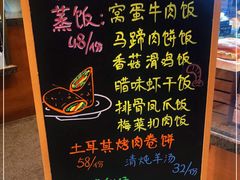 蒸饭:
48/份
窝蛋牛肉饭
马蹄肉饼饭
香菇滑鸡饭
腊味虾干饭
排骨凤爪饭
梅菜扣肉饭
土耳其烤肉卷饼
58/份
清炖羊汤
32/份